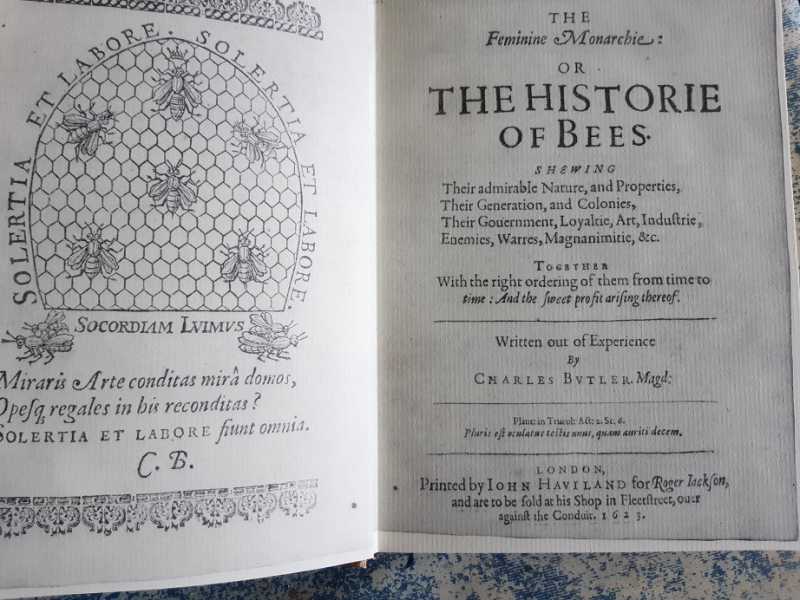 SOLERTIA ET LABORE. SOLERTIA ET LABORE.
SOCORDIAM LVIMVS
Miraris Arte conditas mirâ domos,
Opesq regales in his reconditas?
SOLERTIA ET LABORE fiunt omnia.
C. B.
THE
Feminine Monarchie:
OR
THE HISTORIE
OF BEES.
SHEWING
Their admirable Nature, and Properties,
Their Generation, and Colonies,
Their Gouernment, Loyaltie, Art, Industrie,
Enemies, Warres, Magnanimitie, &c.
TOGETHER
With the right ordering of them from time to
time: And the sweet profit arising thereof.
Written out of Experience
By
CHARLES BVTLER. Magd:
Plaut: in Trucul: Act: 2. Sc. 6.
Pluris est oculatus testis unus, quam auriti decem.
LONDON,
Printed by IOHN HAVILAND for Roger Iackson,
and are to be sold at his Shop in Fleetstreet, ouer
against the Conduit. 1623.